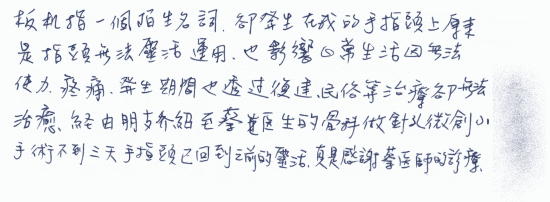 板机指一個陌生名詞,卻發生在我的手指頭上原來
是指頭無法靈活運用,也影響日常生活因無法
使力、疼痛、發生期間也透過復建、民俗等治療卻無法
治癒、經由朋友介紹至蔡醫生的骨科做針孔微創小
手術不到三天手指頭已回到之前的靈活,真是感謝蔡醫師的診療